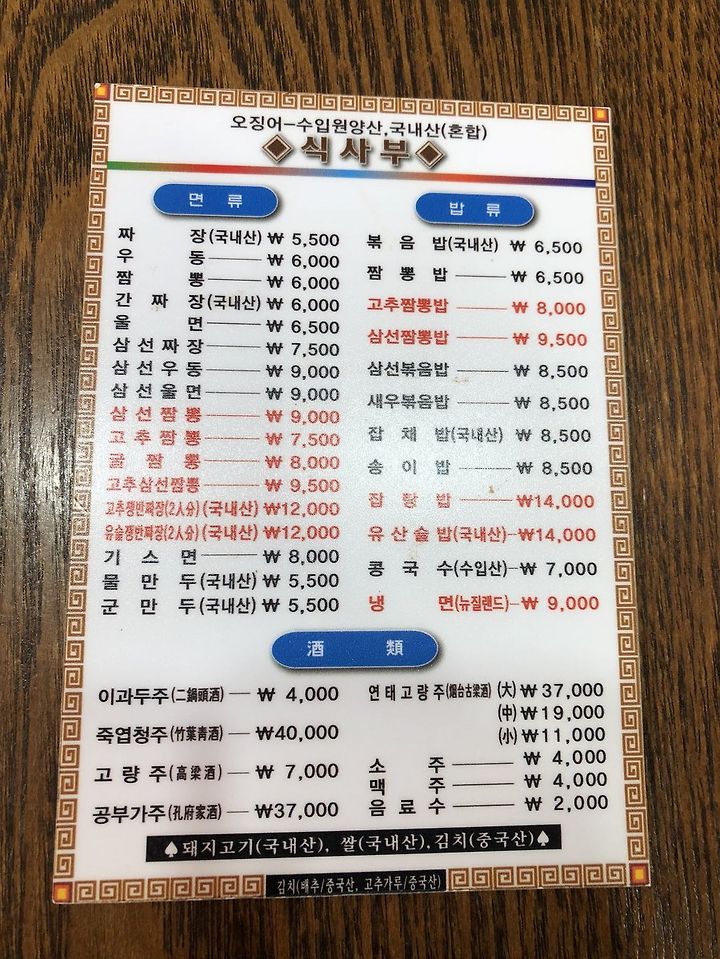 오징어-수입원양산,국내산(혼합)
◈식사부◈
면 류
짜 장(국내산) ₩ 5,500
우 동 ₩ 6,000
짬 뽕 ₩ 6,000
간 짜 장(국내산) ₩ 6,000
울 면 ₩ 6,500
삼선짜장 ₩ 7,500
삼선우동 ₩ 9,000
삼선울면 ₩ 9,000
삼선짬뽕 ₩ 9,000
고추짬뽕 ₩ 7,500
굴 짬 뽕 ₩ 8,000
고추삼선짬뽕 ₩ 9,500
고추쟁반짜장(2人分)(국내산) ₩12,000
유슬쟁반짜장(2人分)(국내산) ₩12,000
기 스 면 ₩ 8,000
물 만 두(국내산) ₩ 5,500
군 만 두(국내산) ₩ 5,500
밥 류
볶 음 밥(국내산) ₩ 6,500
짬 뽕 밥 ₩ 6,500
고추짬뽕밥 ₩ 8,000
삼선짬뽕밥 ₩ 9,500
삼선볶음밥 ₩ 8,500
새우볶음밥 ₩ 8,500
잡 채 밥(국내산) ₩ 8,500
송 이 밥 ₩ 8,500
잡 탕 밥 ₩14,000
유산슬밥(국내산) ₩14,000
콩 국 수(수입산) ₩ 7,000
냉 면(뉴질랜드) ₩ 9,000
酒 類
이과두주(二鍋頭酒) ₩ 4,000
죽엽청주(竹葉靑酒) ₩40,000
고 량 주(高梁酒) ₩ 7,000
공부가주(孔府家酒) ₩37,000
연태고량주(烟台古梁酒) (大) ₩37,000
(中) ₩19,000
(小) ₩11,000
소 주 ₩ 4,000
맥 주 ₩ 4,000
음 료 수 ₩ 2,000
♠돼지고기(국내산), 쌀(국내산),김치(중국산)♠
김치(배추/중국산, 고추가루/중국산)